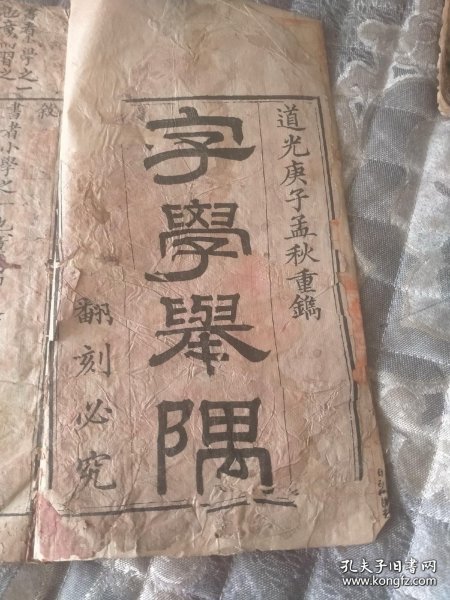 道光庚子孟秋重鐫
字學舉隅
翻刻必究
敘
書者小學之一也
孔夫子旧书网
www.kongfz.com